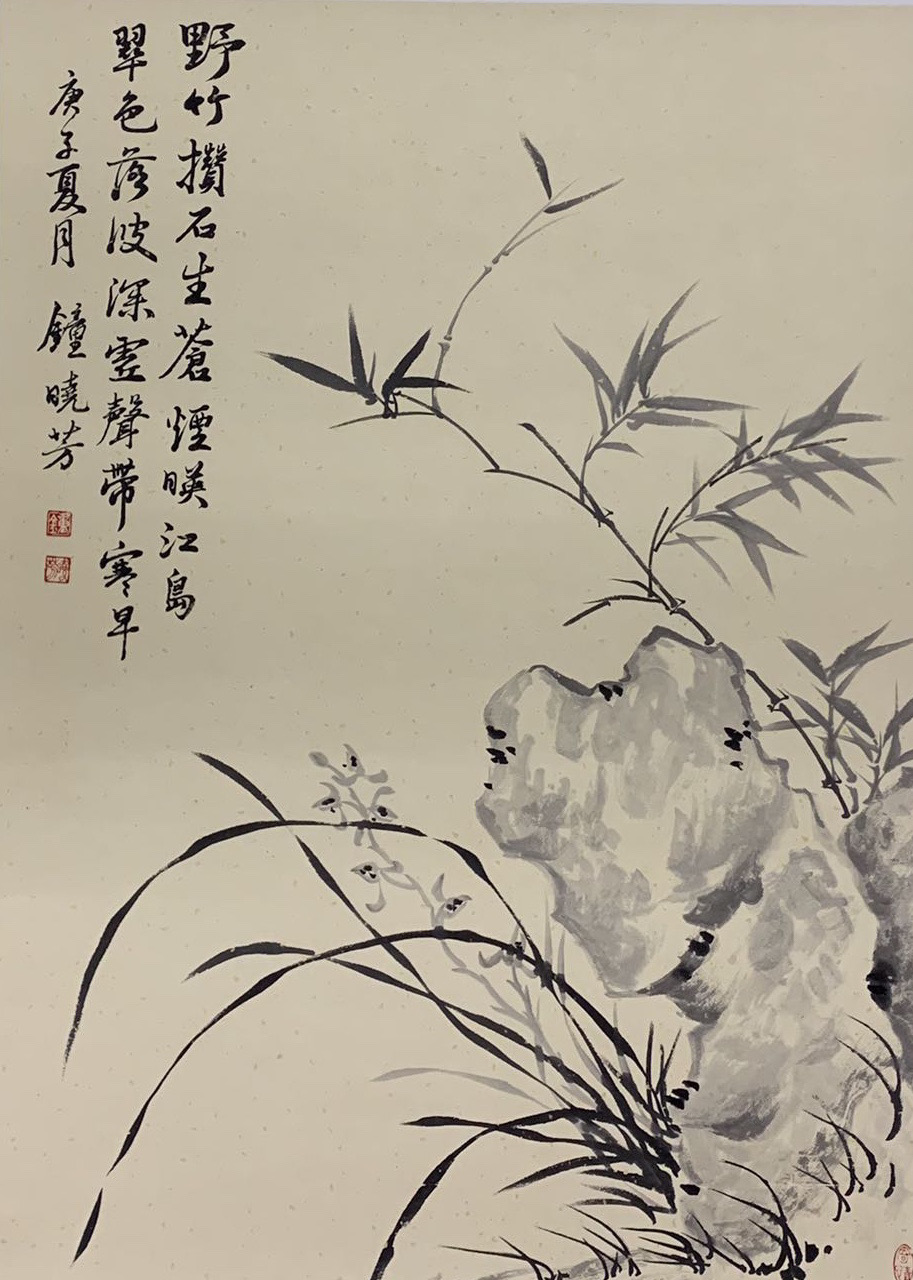 野竹攢石生蒼煙暎江島
翠色落波深虗聲帶寒早
庚子夏月 鐘曉芳